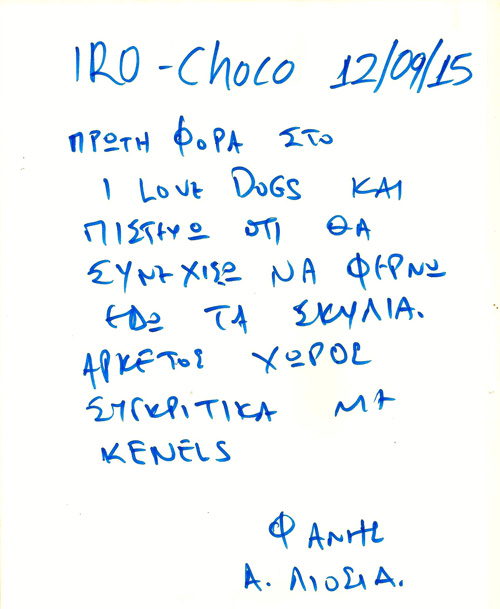 IRO - Choco 12/09/15
ΠΡΩΤΗ ΦΟΡΑ ΣΤΟ
I LOVE DOGS ΚΑΙ
ΠΙΣΤΕΥΩ ΟΤΙ ΘΑ
ΣΥΝΕΧΙΣΩ ΝΑ ΦΕΡΝΩ
ΕΔΩ ΤΑ ΣΚΥΛΙΑ.
ΑΡΚΕΤΟΣ ΧΩΡΟΣ
ΣΥΓΚΡΙΤΙΚΑ ΜΕ
KENELS
ΦΑΝΗΣ
Α. ΛΙΟΣΙΑ.